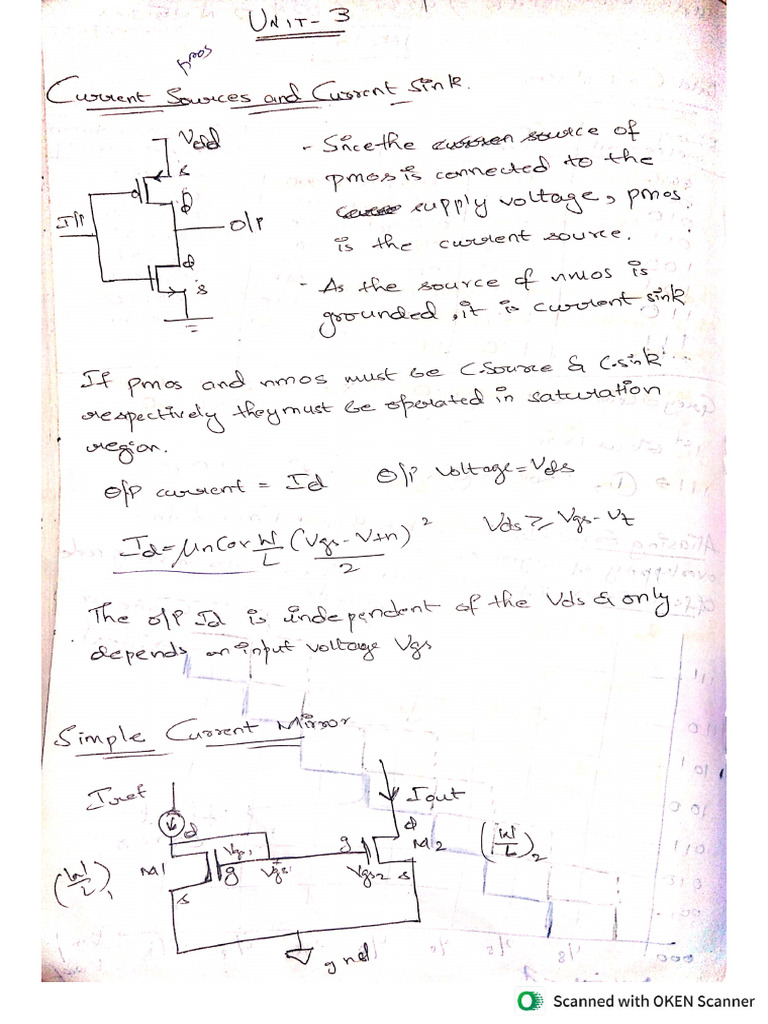 UNIT-3
pmos
Current Sources and Current Sink.
Vdd
s
D
I/P
O/P
d
s
- Since the source of
pmos is connected to the
supply voltage, pmos
is the current source.
- As the source of nmos is
grounded, it is current sink
If pmos and nmos must be C.Source & C.sink
respectively they must be operated in saturation
region.
O/P current = Id O/P voltage = Vds
Id = μn Cox W/L (Vgs - Vtn)² / 2 Vds ≥ Vgs - Vt
The O/P Id is independent of the Vds & only
depends on input voltage Vgs
Simple Current Mirror
Iref
Iout
d
d
(W/L)1
M1
g
g
Vgs2
M2
(W/L)2
s
s
gnd
Scanned with OKEN Scanner